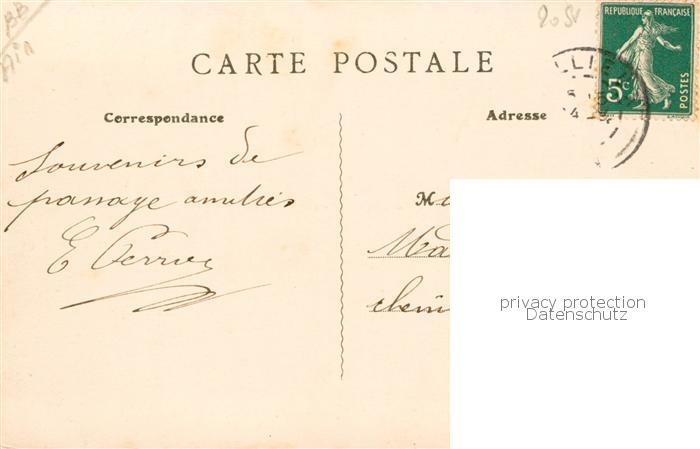 BB
Ain
CARTE POSTALE
REPUBLIQUE FRANÇAISE
5c
POSTES
LLIE
Correspondance
Adresse
Souvenirs de
passage amitiés
E
M
Ma
chemi
privacy protection
Datenschutz